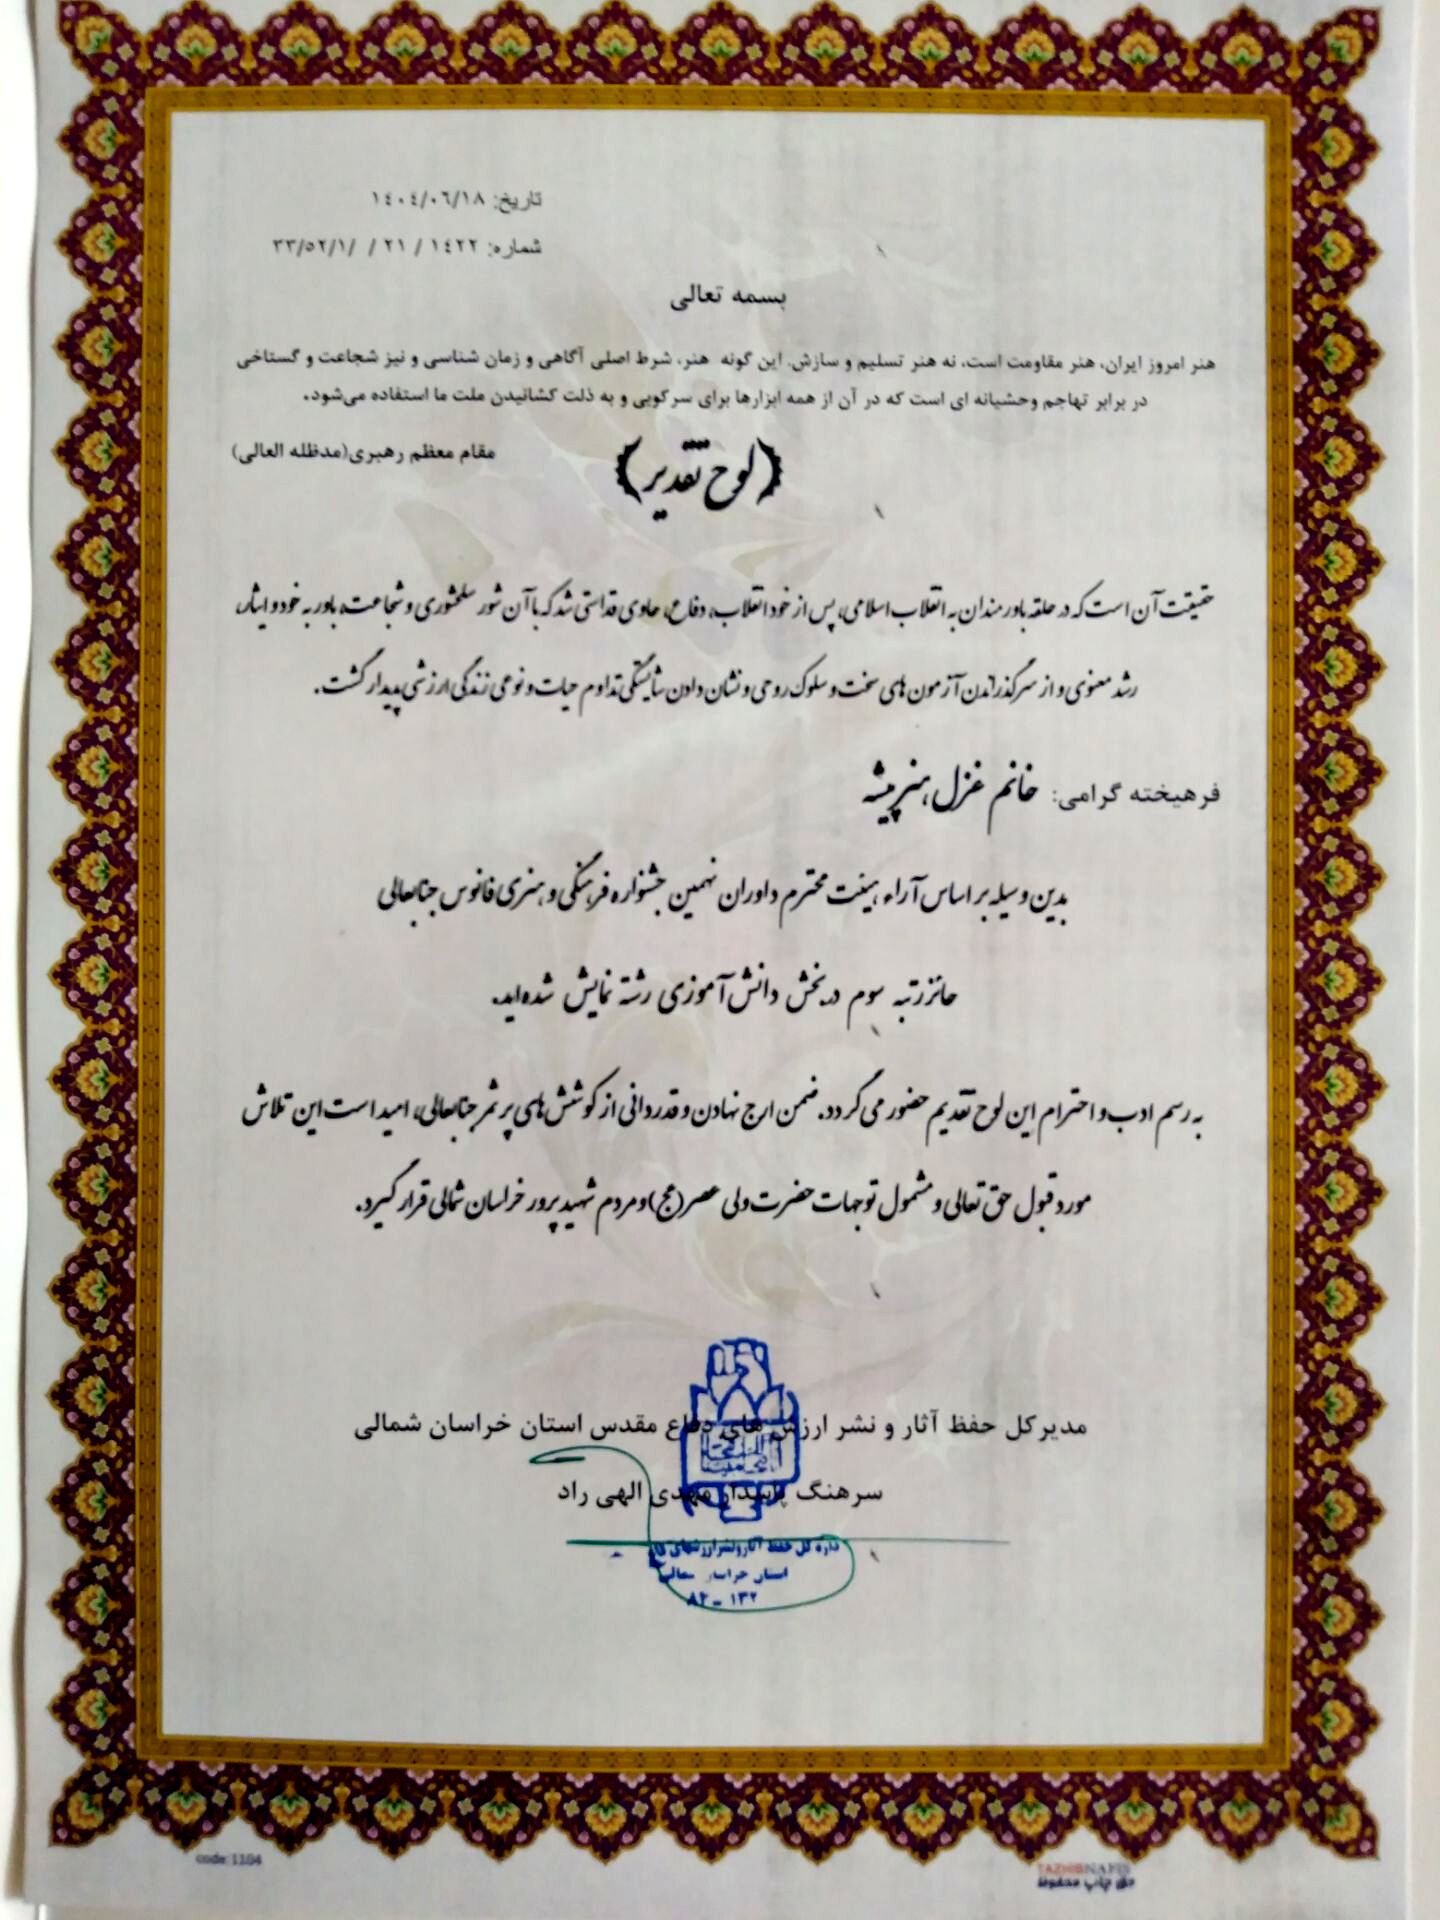 تاریخ: ۱٤۰٤/۰٦/۱۸
شماره: ۱٤۲۲ / ۲۱ / /۳۳/٥۲/۱
بسمه تعالی
هنر امروز ایران، هنر مقاومت است، نه هنر تسلیم و سازش. این گونه هنر، شرط اصلی آگاهی و زمان شناسی و نیز شجاعت و گستاخی
در برابر تهاجم وحشیانه ای است که در آن از همه ابزارها برای سرکوبی و به ذلت کشانیدن ملت ما استفاده می‌شود.
مقام معظم رهبری(مدظله العالی)
(لوح تقدیر)
حقیقت آن است که در حلقه باورمندان به انقلاب اسلامی، پس از خود انقلاب، دفاع، حاوی قداستی شد که با آن شور سلحشوری و شجاعت، باور به خود و ایثار،
رشد معنوی و از سر گذراندن آزمون های سخت و سلوک روحی و نشان دادن شایستگی تداوم حیات و نوعی زندگی ارزشی پدیدار گشت.
فرهیخته گرامی: خانم غزل هنرپیشه
بدین وسیله بر اساس آراء هیئت محترم داوران نهمین جشنواره فرهنگی و هنری فانوس جنابعالی
حائز رتبه سوم در بخش دانش آموزی رشته نمایش شده اید.
به رسم ادب و احترام این لوح تقدیم حضور می گردد. ضمن ارج نهادن و قدردانی از کوشش های پر ثمر جنابعالی، امید است این تلاش
مورد قبول حق تعالی و مشمول توجهات حضرت ولی عصر(عج) و مردم شهید پرور خراسان شمالی قرار گیرد.
مدیرکل حفظ آثار و نشر ارزش های دفاع مقدس استان خراسان شمالی
سرهنگ پاسدار مهدی الهی راد
اداره کل حفظ آثار و نشر ارزشهای
استان خراسان شمالی
۱۳۲ – ۸۲
code:1104
TAZHIBNAFIS
حق چاپ محفوظ